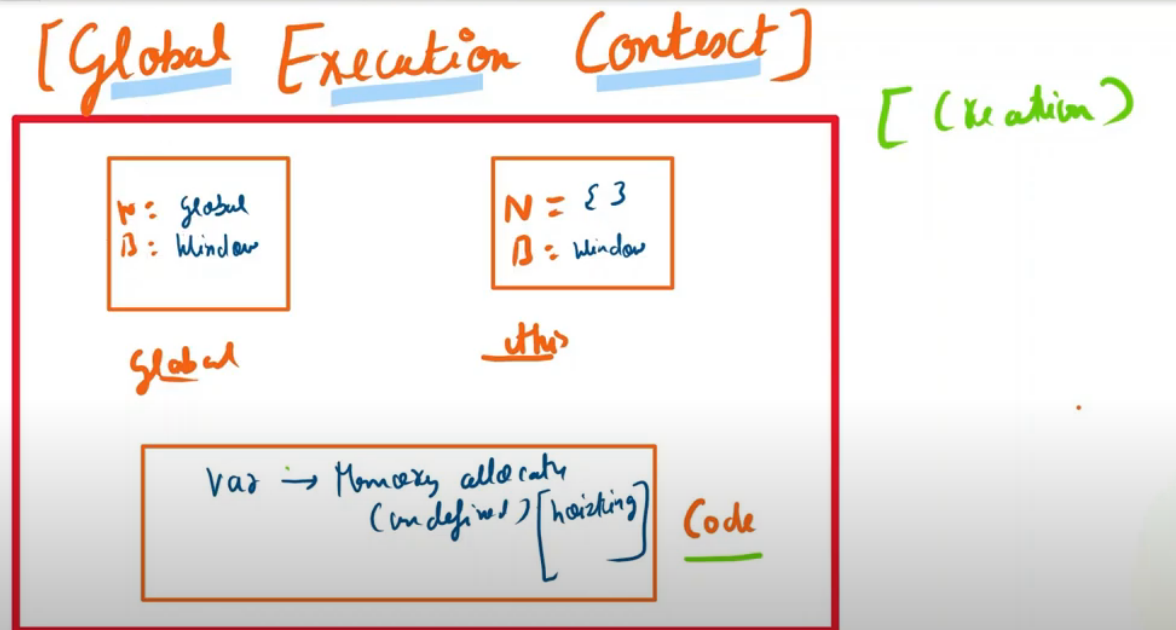 [Global Execution Context]
[ Creation)
N: global
B: Window
N = { }
B: Window
Global
this
Var → Memory allocate
(undefined) [hoisting]
Code